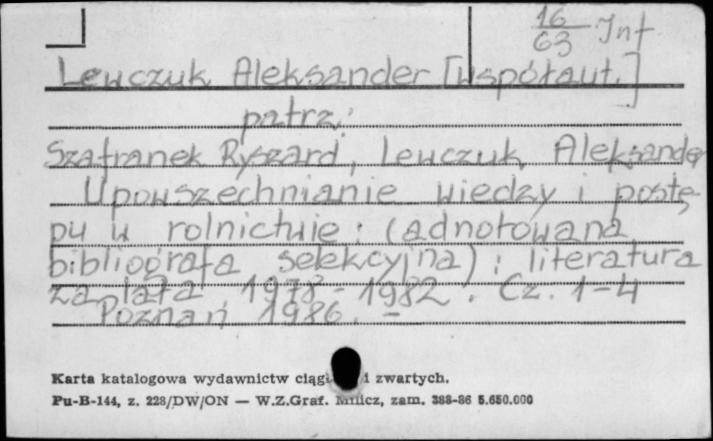 16/63 Int
Lewczuk Aleksander [współaut.]
patrz:
Szafranek Ryszard, Lewczuk Aleksander
Upowszechnianie wiedzy i postę-
pu w rolnictwie : (adnotowana
bibliografa selekcyjna) : literatura
za lata 1978-1982. Cz. 1-4
Poznań 1986. -
Karta katalogowa wydawnictw zwartych.
Pu-B-144, z. 228/DW/ON — W.Z.Graf. Milicz, zam. 388-86 5.650.000